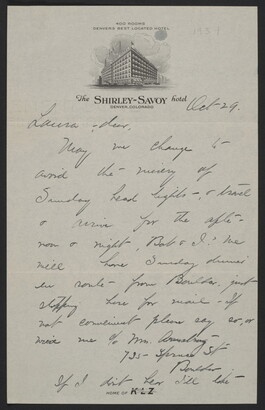 400 ROOMS
DENVER'S BEST LOCATED HOTEL
1937
The SHIRLEY-SAVOY hotel
DENVER, COLORADO
Oct 29.
Laura - dear,
May we change to
avoid the misery of
Sunday head lights - & travel
& arrive for the after-
noon & night, Bob & I. We
will have Sunday dinner
en route - from Boulder, just
stopping here for mail - If
not convenient please say so, or
wire me % Mrs. Armstrong
735 - Spruce St
Boulder
If I don't hear I'll
HOME OF KLZ